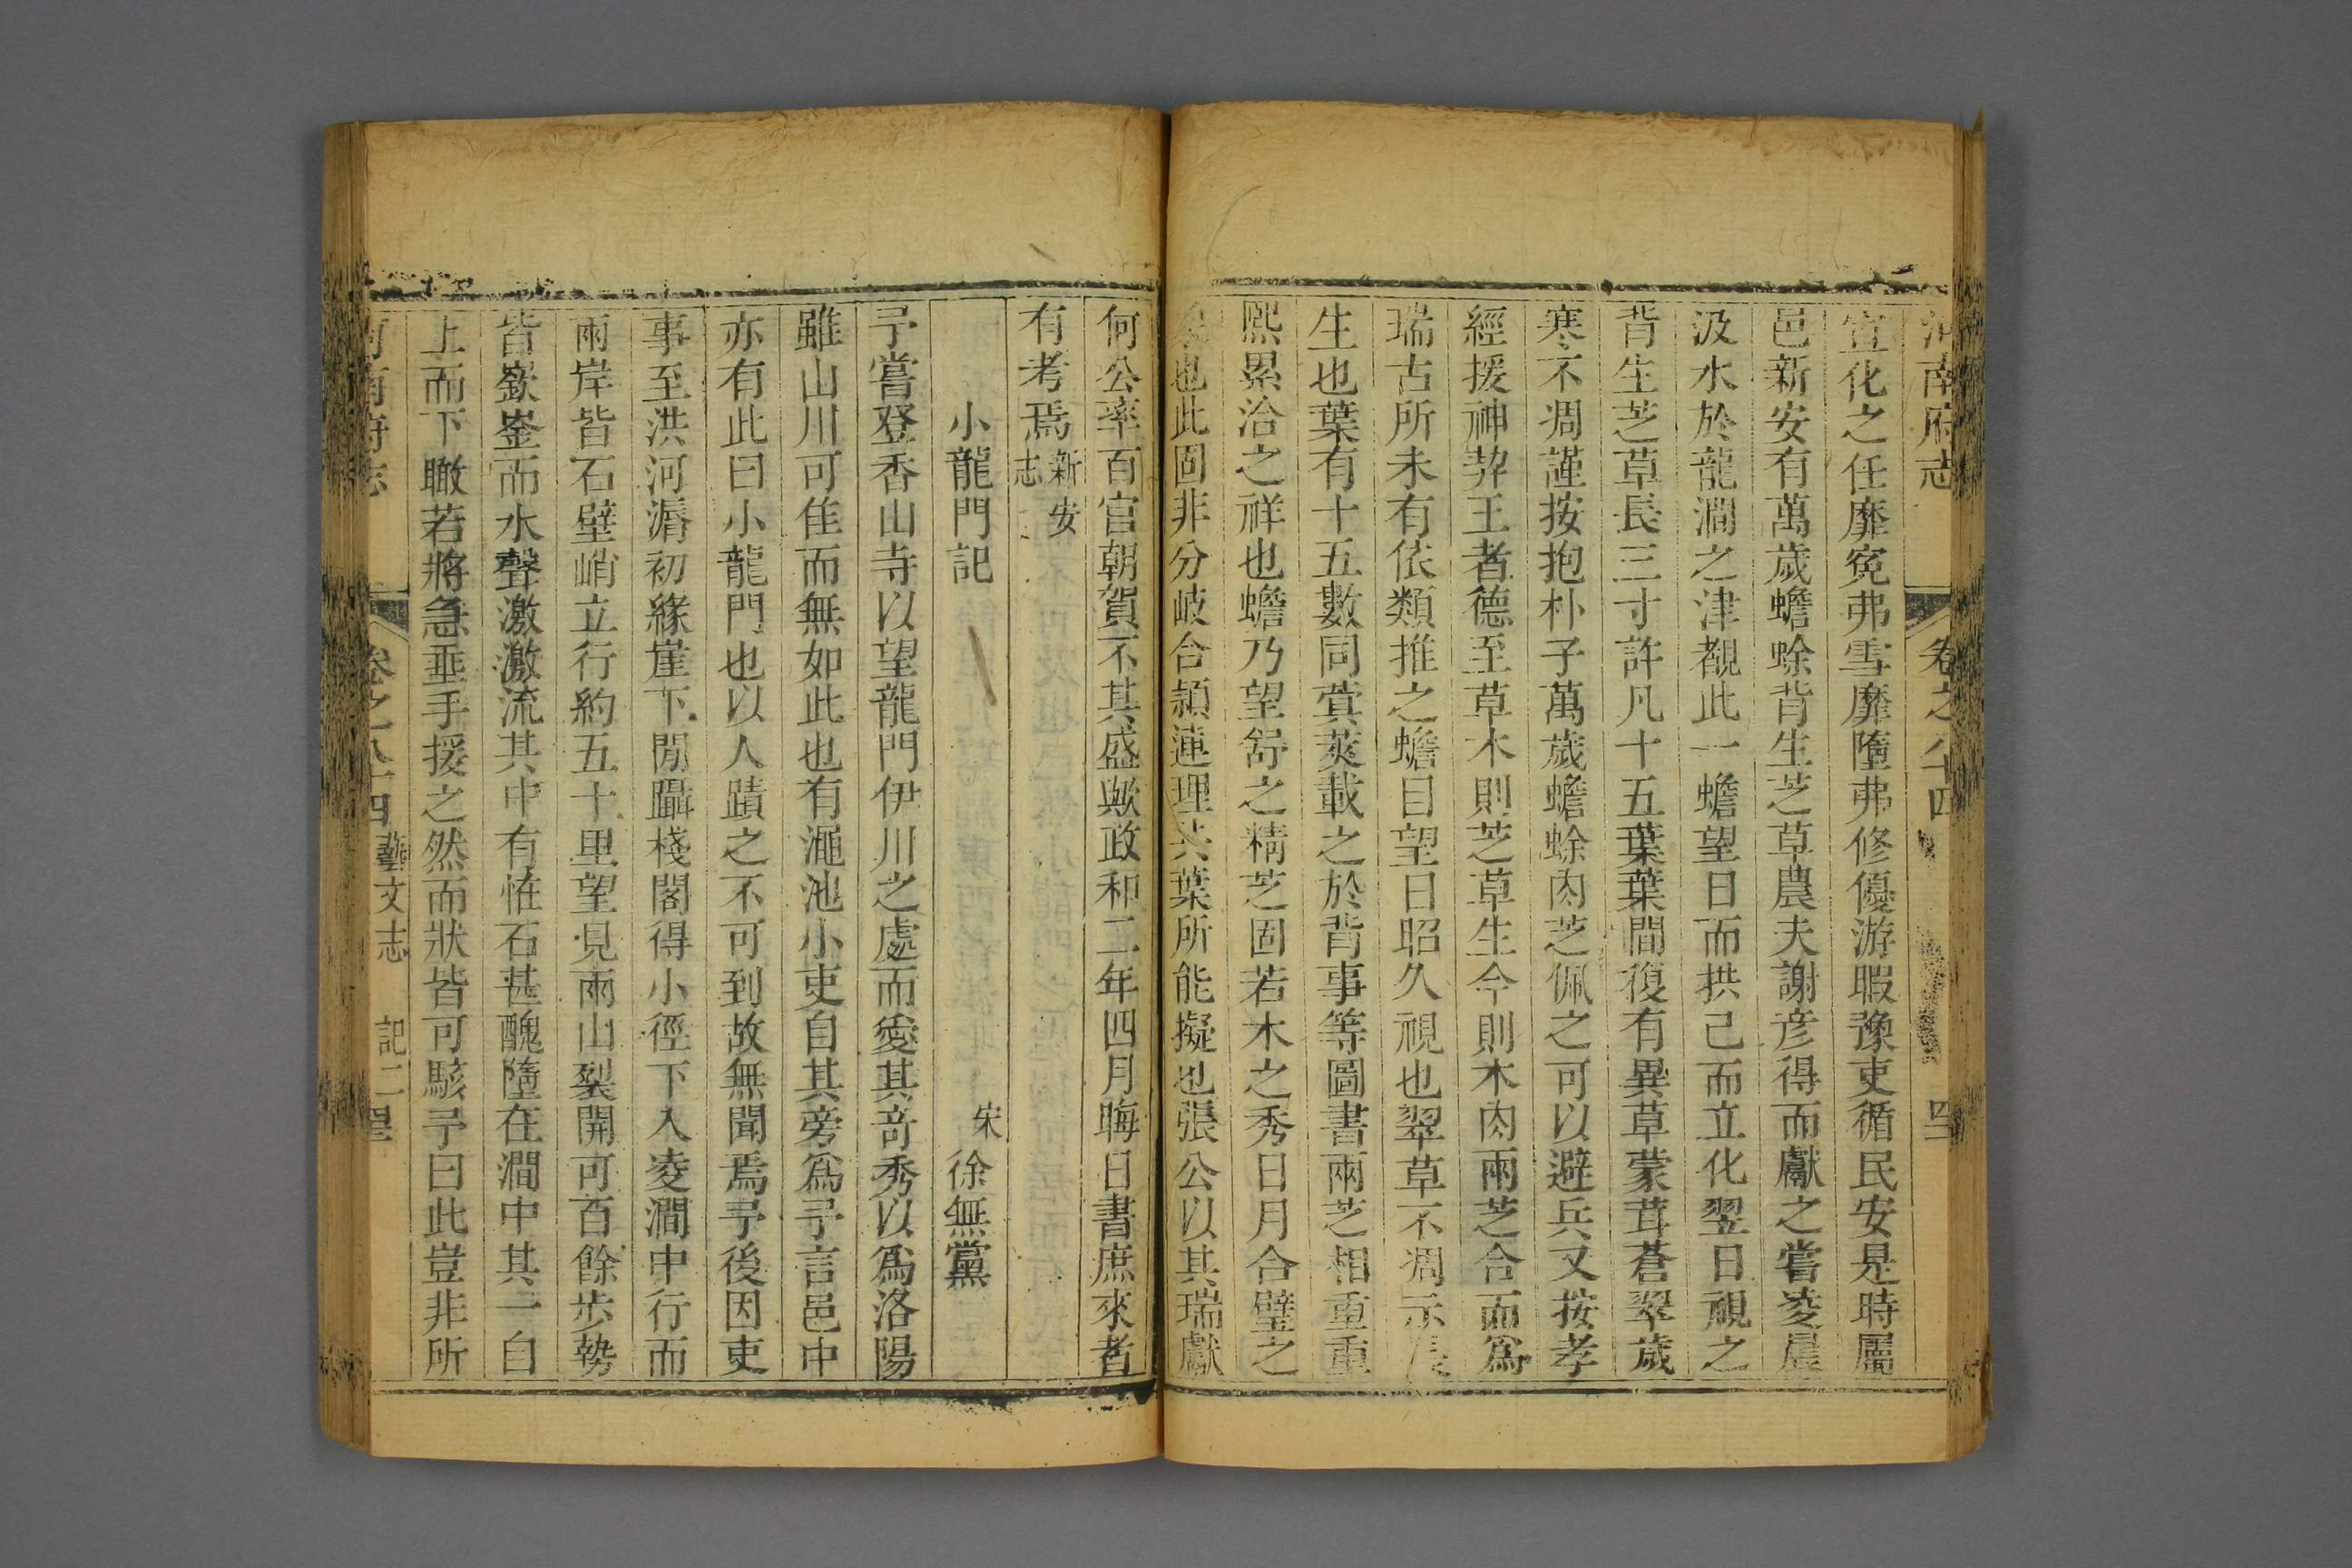 河南府志 卷之八十四 四
宣化之任靡冤弗雪靡墮弗修優游暇豫吏循民安是時屬
邑新安有萬歲蟾蜍背生芝草農夫謝彦得而獻之嘗凌晨
汲水於龍澗之津覩此一蟾望日而拱己而立化翌日視之
背生芝草長三寸許凡十五葉葉間復有異草蒙茸蒼翠歲
寒不凋謹按抱朴子萬歲蟾蜍肉芝佩之可以避兵又按孝
經援神契王者德至草木則芝草生今則木肉兩芝合而爲
瑞古所未有依類推之蟾目望日昭久視也翠草不凋示長
生也葉有十五數同蓂莢載之於背事等圖書兩芝相重重
熙累洽之祥也蟾乃望舒之精芝固若木之秀日月合璧之
也此固非分岐合穎連理共葉所能擬也張公以其瑞獻
何公率百官朝賀不其盛歟政和二年四月晦日書庶來者
有考焉 新安志
小龍門記 宋 徐無黨
予嘗登香山寺以望龍門伊川之處而愛其奇秀以爲洛陽
雖山川可佳而無如此也有澠池小吏自其旁爲予言邑中
亦有此曰小龍門也以人蹟之不可到故無聞焉予後因吏
事至洪河漘初緣崖下閒躡棧閣得小徑下入凌澗中行而
兩岸皆石壁峭立行約五十里望見兩山裂開可百餘步勢
皆嶔崟而水聲激激流其中有恠石甚醜墮在澗中其一自
上而下瞰若將急垂手援之然而狀皆可駭予曰此豈非所
河南府志 卷之八十四 藝文志 記二